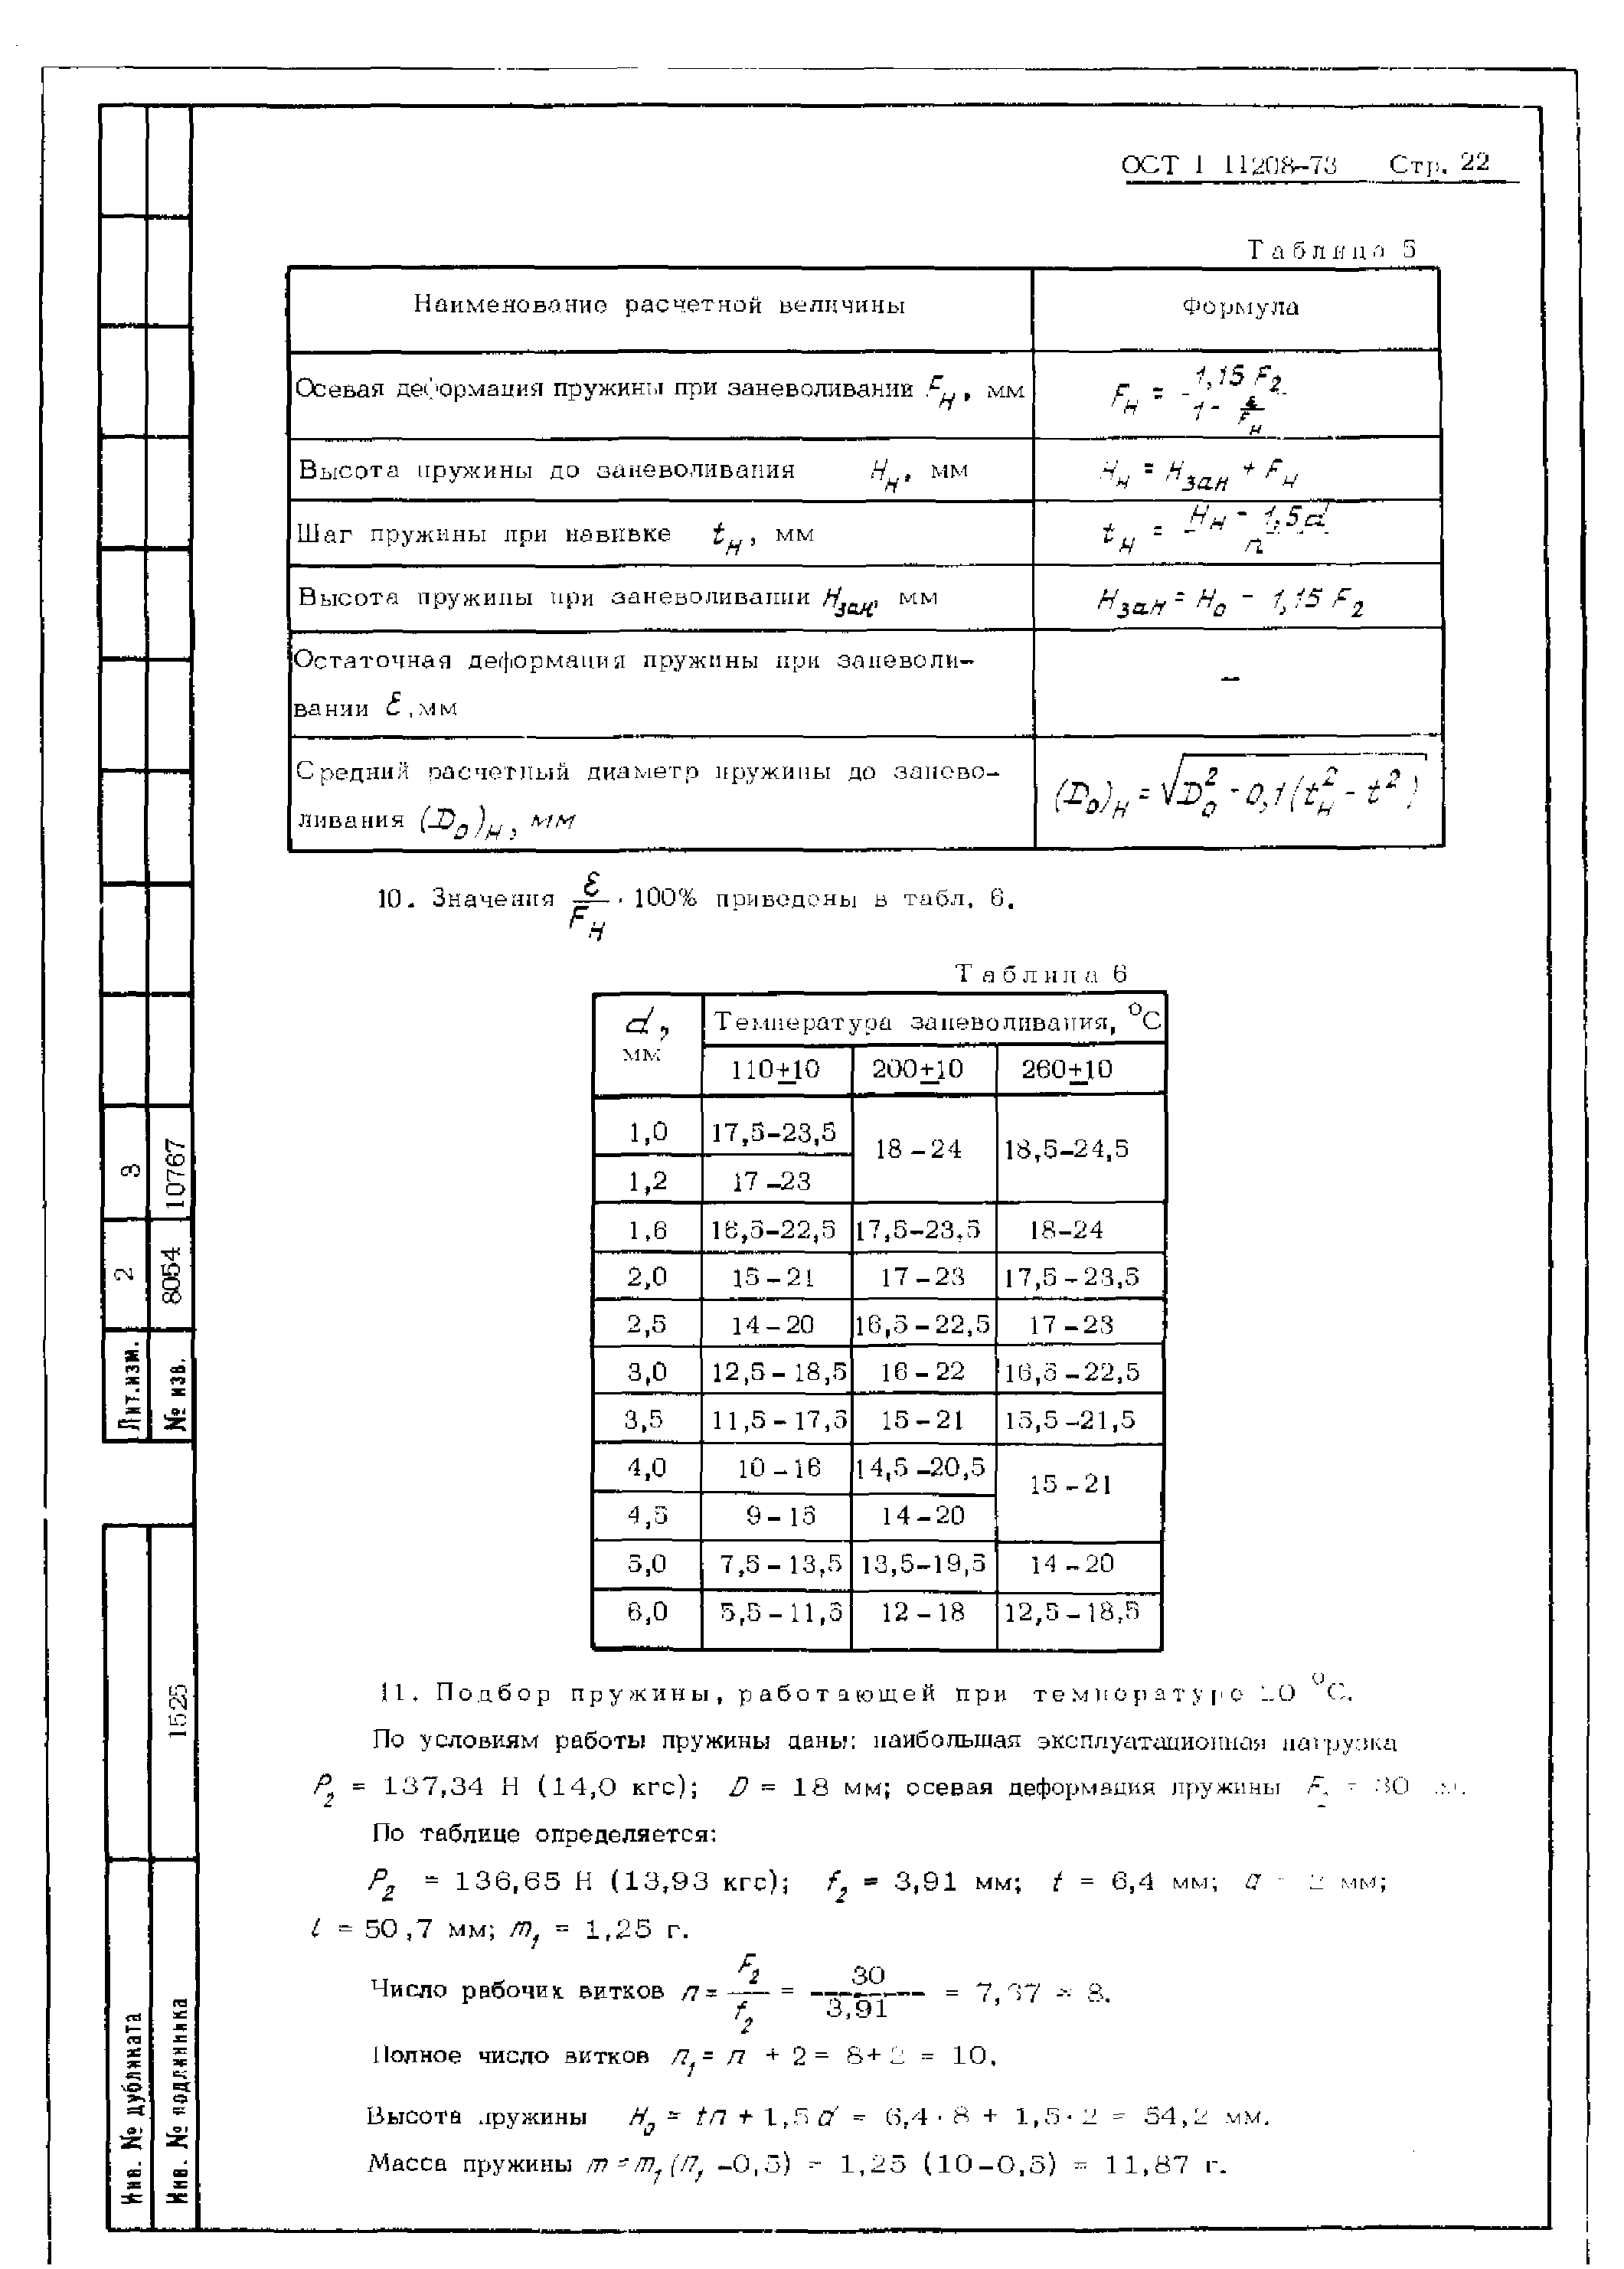 ОСТ 1 11208-73 Стр. 22
Таблица 5
Наименование расчетной величины Формула
Осевая деформация пружины при заневоливании Fн, мм Fн = 1,15 F2 / (1 - ε/Fн)
Высота пружины до заневоливания Нн, мм Нн = Нзан + Fн
Шаг пружины при навивке tн, мм tн = (Нн - 1,5d) / n
Высота пружины при заневоливании Нзан, мм Нзан = Н0 - 1,15 F2
Остаточная деформация пружины при заневоли-
вании ε, мм –
Средний расчетный диаметр пружины до занево-
ливания (D0)н, мм (D0)н = √(D0² - 0,1(tн² - t²))
10. Значения ε/Fн · 100% приведены в табл. 6.
Таблица 6
d, мм Температура заневоливания, °С
110±10 200±10 260±10
1,0 17,5-23,5 18-24 18,5-24,5
1,2 17-23
1,6 16,5-22,5 17,5-23,5 18-24
2,0 15-21 17-23 17,5-23,5
2,5 14-20 16,5-22,5 17-23
3,0 12,5-18,5 16-22 16,5-22,5
3,5 11,5-17,5 15-21 15,5-21,5
4,0 10-16 14,5-20,5 15-21
4,5 9-15 14-20
5,0 7,5-13,5 13,5-19,5 14-20
6,0 5,5-11,5 12-18 12,5-18,5
11. Подбор пружины, работающей при температуре °С.
По условиям работы пружины даны: наибольшая эксплуатационная нагрузка
P2 = 137,34 Н (14,0 кгс); D = 18 мм; осевая деформация пружины F2 = 30
По таблице определяется:
P2 = 136,65 Н (13,93 кгс); f2 = 3,91 мм; t = 6,4 мм; d = 2 мм;
l = 50,7 мм; m1 = 1,25 г.
Число рабочих витков n = F2/f2 = 30/3,91 = 7,67 ≈ 8.
Полное число витков n1 = n + 2 = 8+2 = 10.
Высота пружины Н0 = tn + 1,5 d = 6,4 · 8 + 1,5 · 2 = 54,2 мм.
Масса пружины m = m1 (n1 -0,5) = 1,25 (10-0,5) = 11,87 г.
Лит.изм. 2 3
№ изв. 8054 10767
Инв. № дубликата
Инв. № подлинника 1525